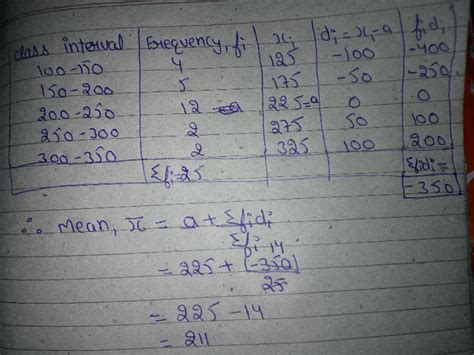 class interval Frequency, fi xi di = xi-a fidi
100-150 4 125 -100 -400
150-200 5 175 -50 -250
200-250 12 225=a 0 0
250-300 2 275 50 100
300-350 2 325 100 200
Σfi=25 Σfidi=
-350
∴ Mean, x̄ = a + Σfidi
Σfi
-14
= 225 + (-350)
25
= 225 - 14
= 211